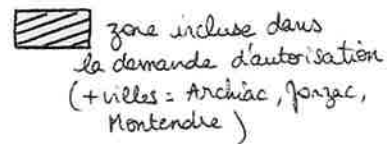 zone incluse dans
la demande d'autorisation
(+villes = Archiac, Jonzac,
Montendre)